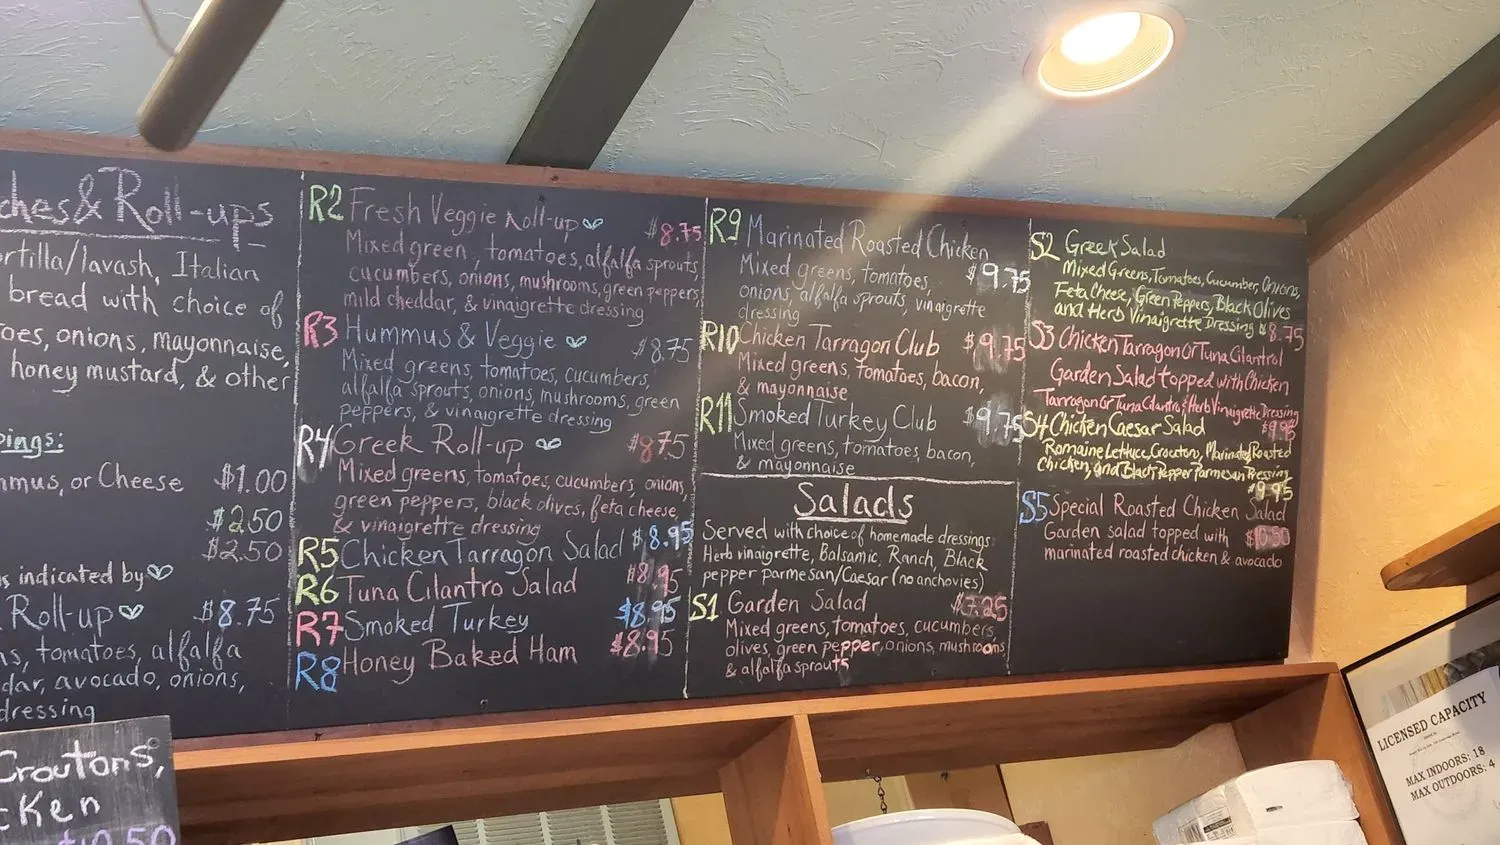 ches & Roll-ups
ortilla/lavash, Italian
bread with choice of
oes, onions, mayonnaise,
honey mustard, & other
pings:
mmus, or Cheese $1.00
$2.50
$2.50
s indicated by ♡
Roll-up ♡ $8.75
s, tomatoes, alfalfa
dar, avocado, onions,
dressing
Croutons,
cken
$10.50
R2 Fresh Veggie Roll-up ♡ $8.75
Mixed green, tomatoes, alfalfa sprouts,
cucumbers, onions, mushrooms, green peppers,
mild cheddar, & vinaigrette dressing
R3 Hummus & Veggie ♡ $8.75
Mixed greens, tomatoes, cucumbers,
alfalfa sprouts, onions, mushrooms, green
peppers, & vinaigrette dressing
R4 Greek Roll-up ♡ $8.75
Mixed greens, tomatoes, cucumbers, onions,
green peppers, black olives, feta cheese,
& vinaigrette dressing
R5 Chicken Tarragon Salad $8.95
R6 Tuna Cilantro Salad $8.95
R7 Smoked Turkey $8.95
R8 Honey Baked Ham $8.95
R9 Marinated Roasted Chicken
Mixed greens, tomatoes, $9.75
onions, alfalfa sprouts, vinaigrette
dressing
R10 Chicken Tarragon Club $9.75
Mixed greens, tomatoes, bacon,
& mayonnaise
R11 Smoked Turkey Club $9.75
Mixed greens, tomatoes, bacon,
& mayonnaise
Salads
Served with choice of homemade dressings
Herb vinaigrette, Balsamic, Ranch, Black
pepper parmesan/Caesar (no anchovies)
S1 Garden Salad $7.25
Mixed greens, tomatoes, cucumbers,
olives, green pepper, onions, mushrooms,
& alfalfa sprouts
S2 Greek Salad
Mixed Greens, Tomatoes, Cucumber, Onions,
Feta Cheese, Green Peppers, Black Olives
and Herb Vinaigrette Dressing $8.75
S3 Chicken Tarragon Or Tuna Cilantrol
Garden Salad topped with Chicken
Tarragon Or Tuna Cilantro & Herb Vinaigrette Dressing
$9.95
S4 Chicken Caesar Salad
Romaine Lettuce, Crouton, Marinated Roasted
Chicken, and Black Pepper Parmesan Dressing
$9.95
S5 Special Roasted Chicken Salad
Garden salad topped with $10.50
marinated roasted chicken & avocado
LICENSED CAPACITY
MAX INDOORS: 18
MAX OUTDOORS: 4